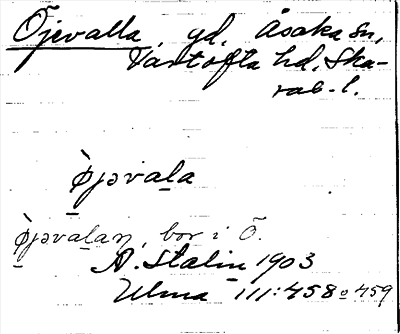 Öjevalla, gd, Åsaka sn,
Vartofta hd, Ska-
rab. l.
ø̀jəvala
ø̀jəvalaŋ, bor i Ö.
A. Stalin 1903
Ulma 111:458 o 459